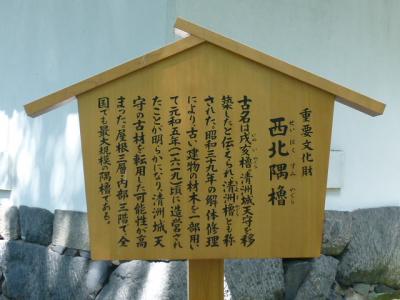 重要文化財
せいほくすみやぐら
西北隅櫓
いぬいやぐら
古名は戌亥櫓、清洲城天守を移
築したと伝えられ清洲櫓とも称
きよすやぐら
された。昭和三十九年の解体修理
により、古い建物の材木を一部用い
て元和五年(一六一九)頃に造営され
たことが明らかになり、清洲城天
守の古材を転用した可能性が高
まった。屋根三層、内部三階で、全
国でも最大規模の隅櫓である。